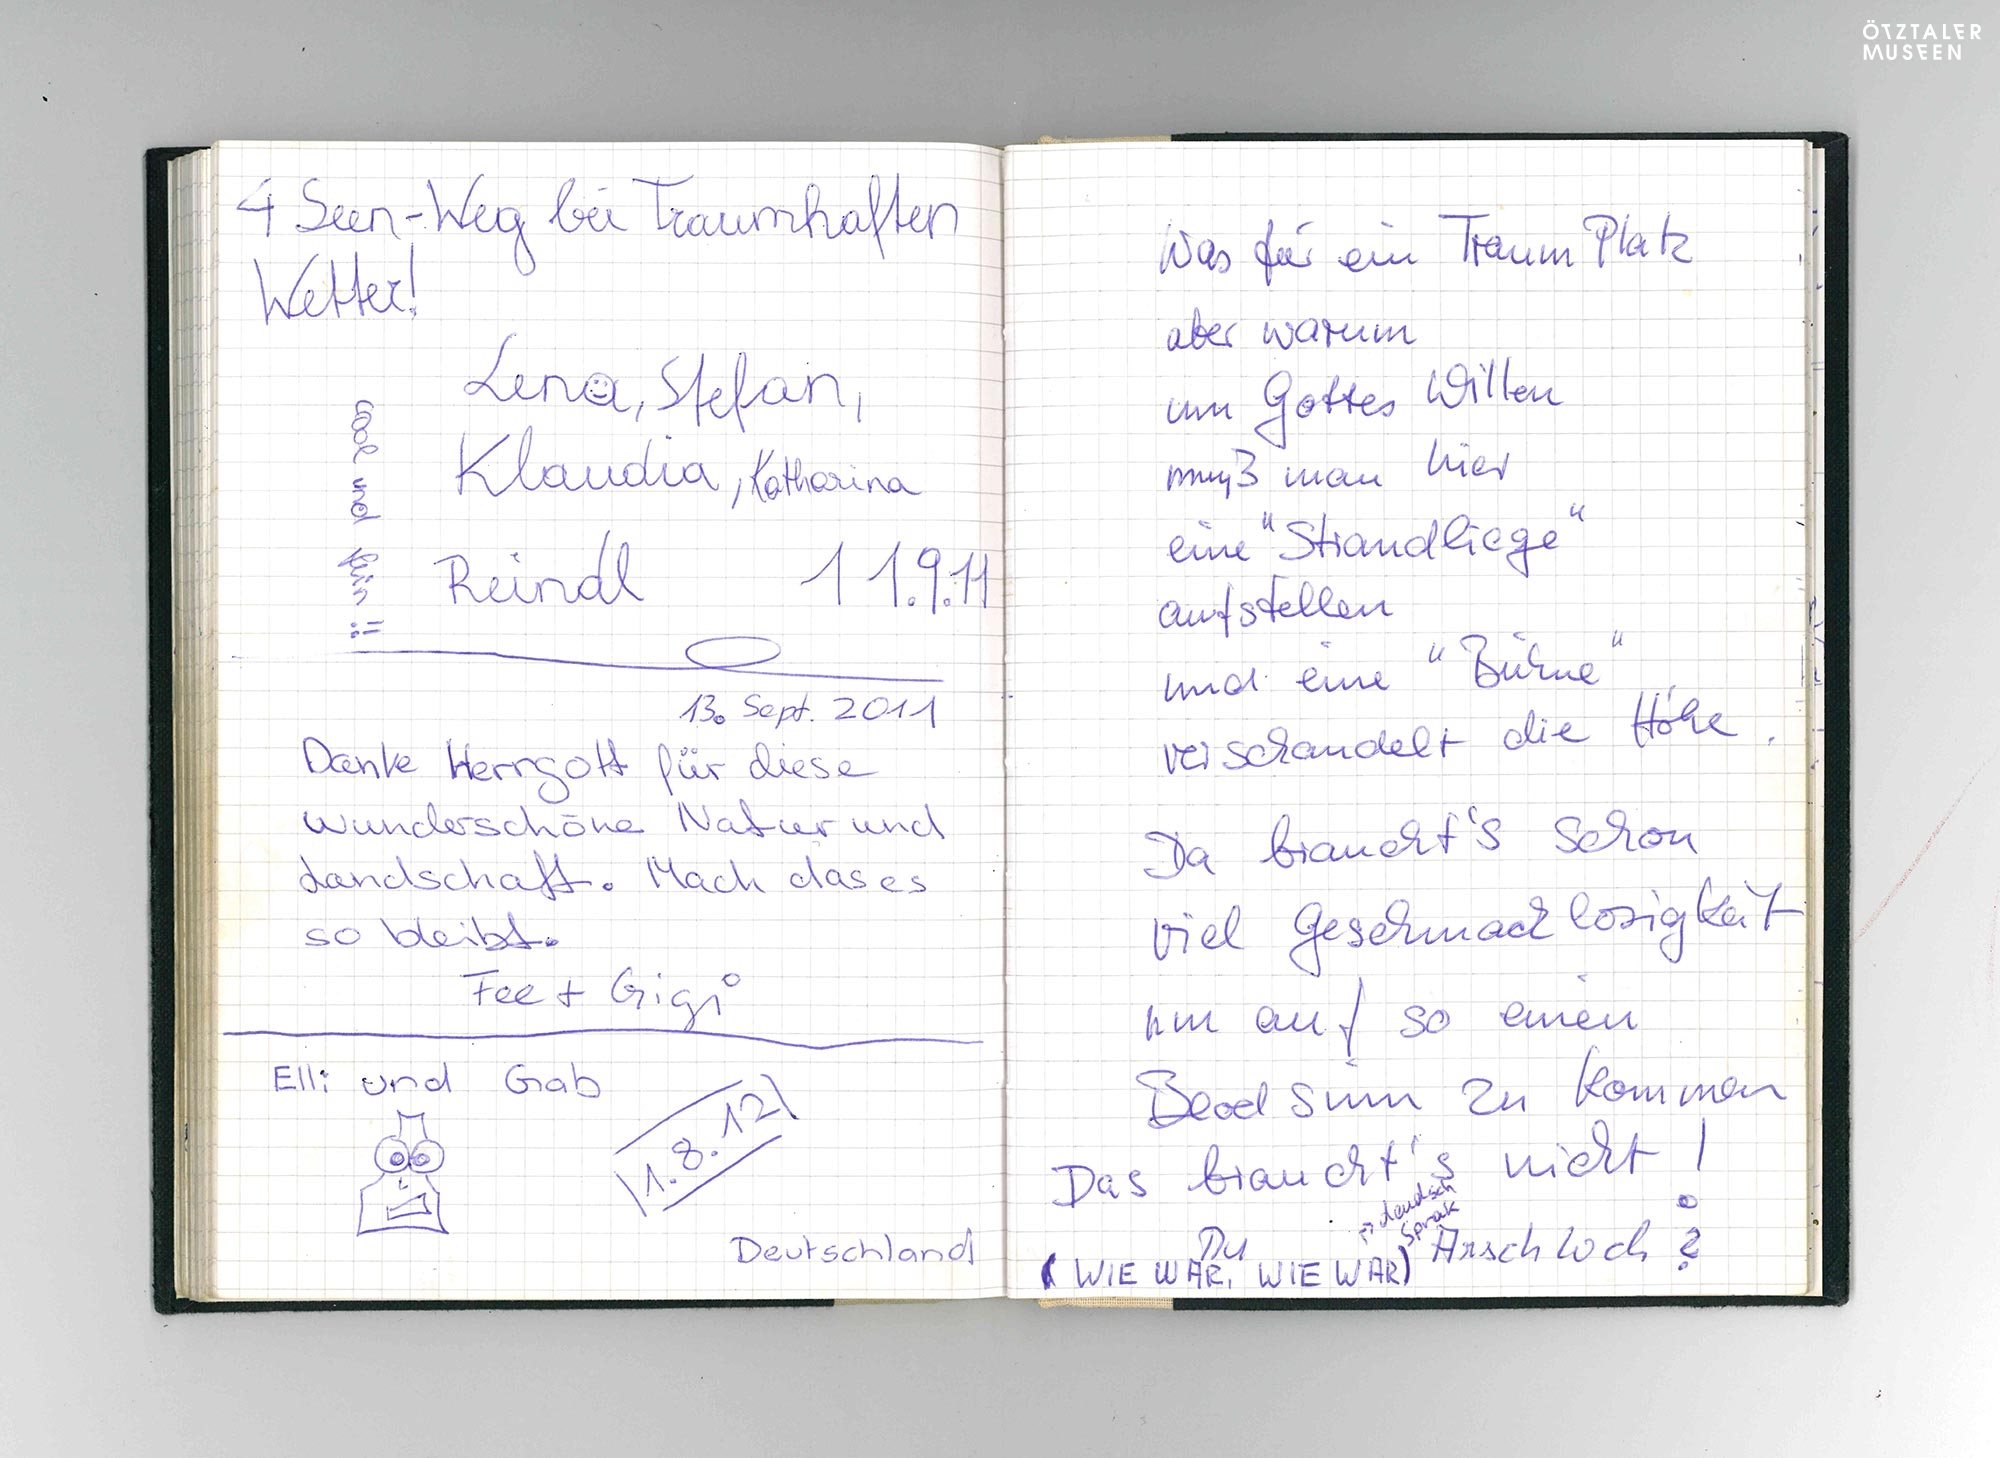 ÖTZTALER
MUSEEN
4 Seen-Weg bei Traumhaften
Wetter!
Lena, Stefan,
Klaudia, Katharina
Reindl 11.9.11
cool und
13. Sept. 2011
Danke Herrgott für diese
wunderschöne Natur und
Landschaft. Mach das es
so bleibt.
Fee + Gigi
Elli und Gab
1.8.12
Deutschland
Was für ein Traum Platz
aber warum
um Gottes Willen
muß man hier
eine "Strandliege"
aufstellen
und eine "Bühne"
verschandelt die Höhe.
Da braucht's schon
viel Geschmacklosigkeit
um auf so einen
Blödsinn zu kommen
Das braucht's nicht!
Du Arschloch?
(WIE WAR, WIE WAR)